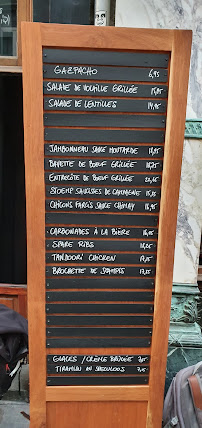 GAZPACHO 6,95
SALADE DE VOLAILLE GRILLÉE 15,95
SALADE DE LENTILLES 14,95
JAMBONNEAU SAUCE MOUTARDE
BAVETTE DE BŒUF GRILLÉE
ENTRECÔTE DE BŒUF GRILLÉE
STOEMP SAUCISSES DE CAMPAGNE
CHICONS FARCIS SAUCE CHIMAY
CARBONADES À LA BIÈRE
SPARE RIBS
TANDOORI CHICKEN
BROCHETTE DE SCAMPIS
GLACES / CRÈME BRÛLÉE
TIRAMISU AU SPECULOOS